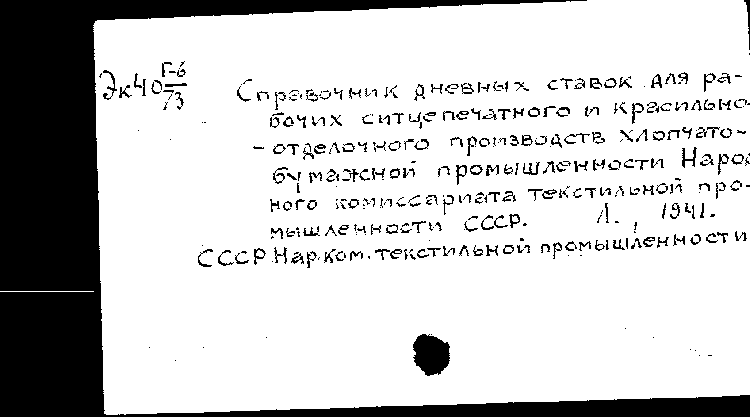 Г-6
Эк40 73
Справочник дневных ставок для ра-
бочих ситцепечатного и красильно
- отделочного производств хлопчато-
бумажной промышленности Народ
ного комиссариата текстильной про-
мышленности СССР. Л., 1941.
СССР. Нар.ком. текстильной промышленности